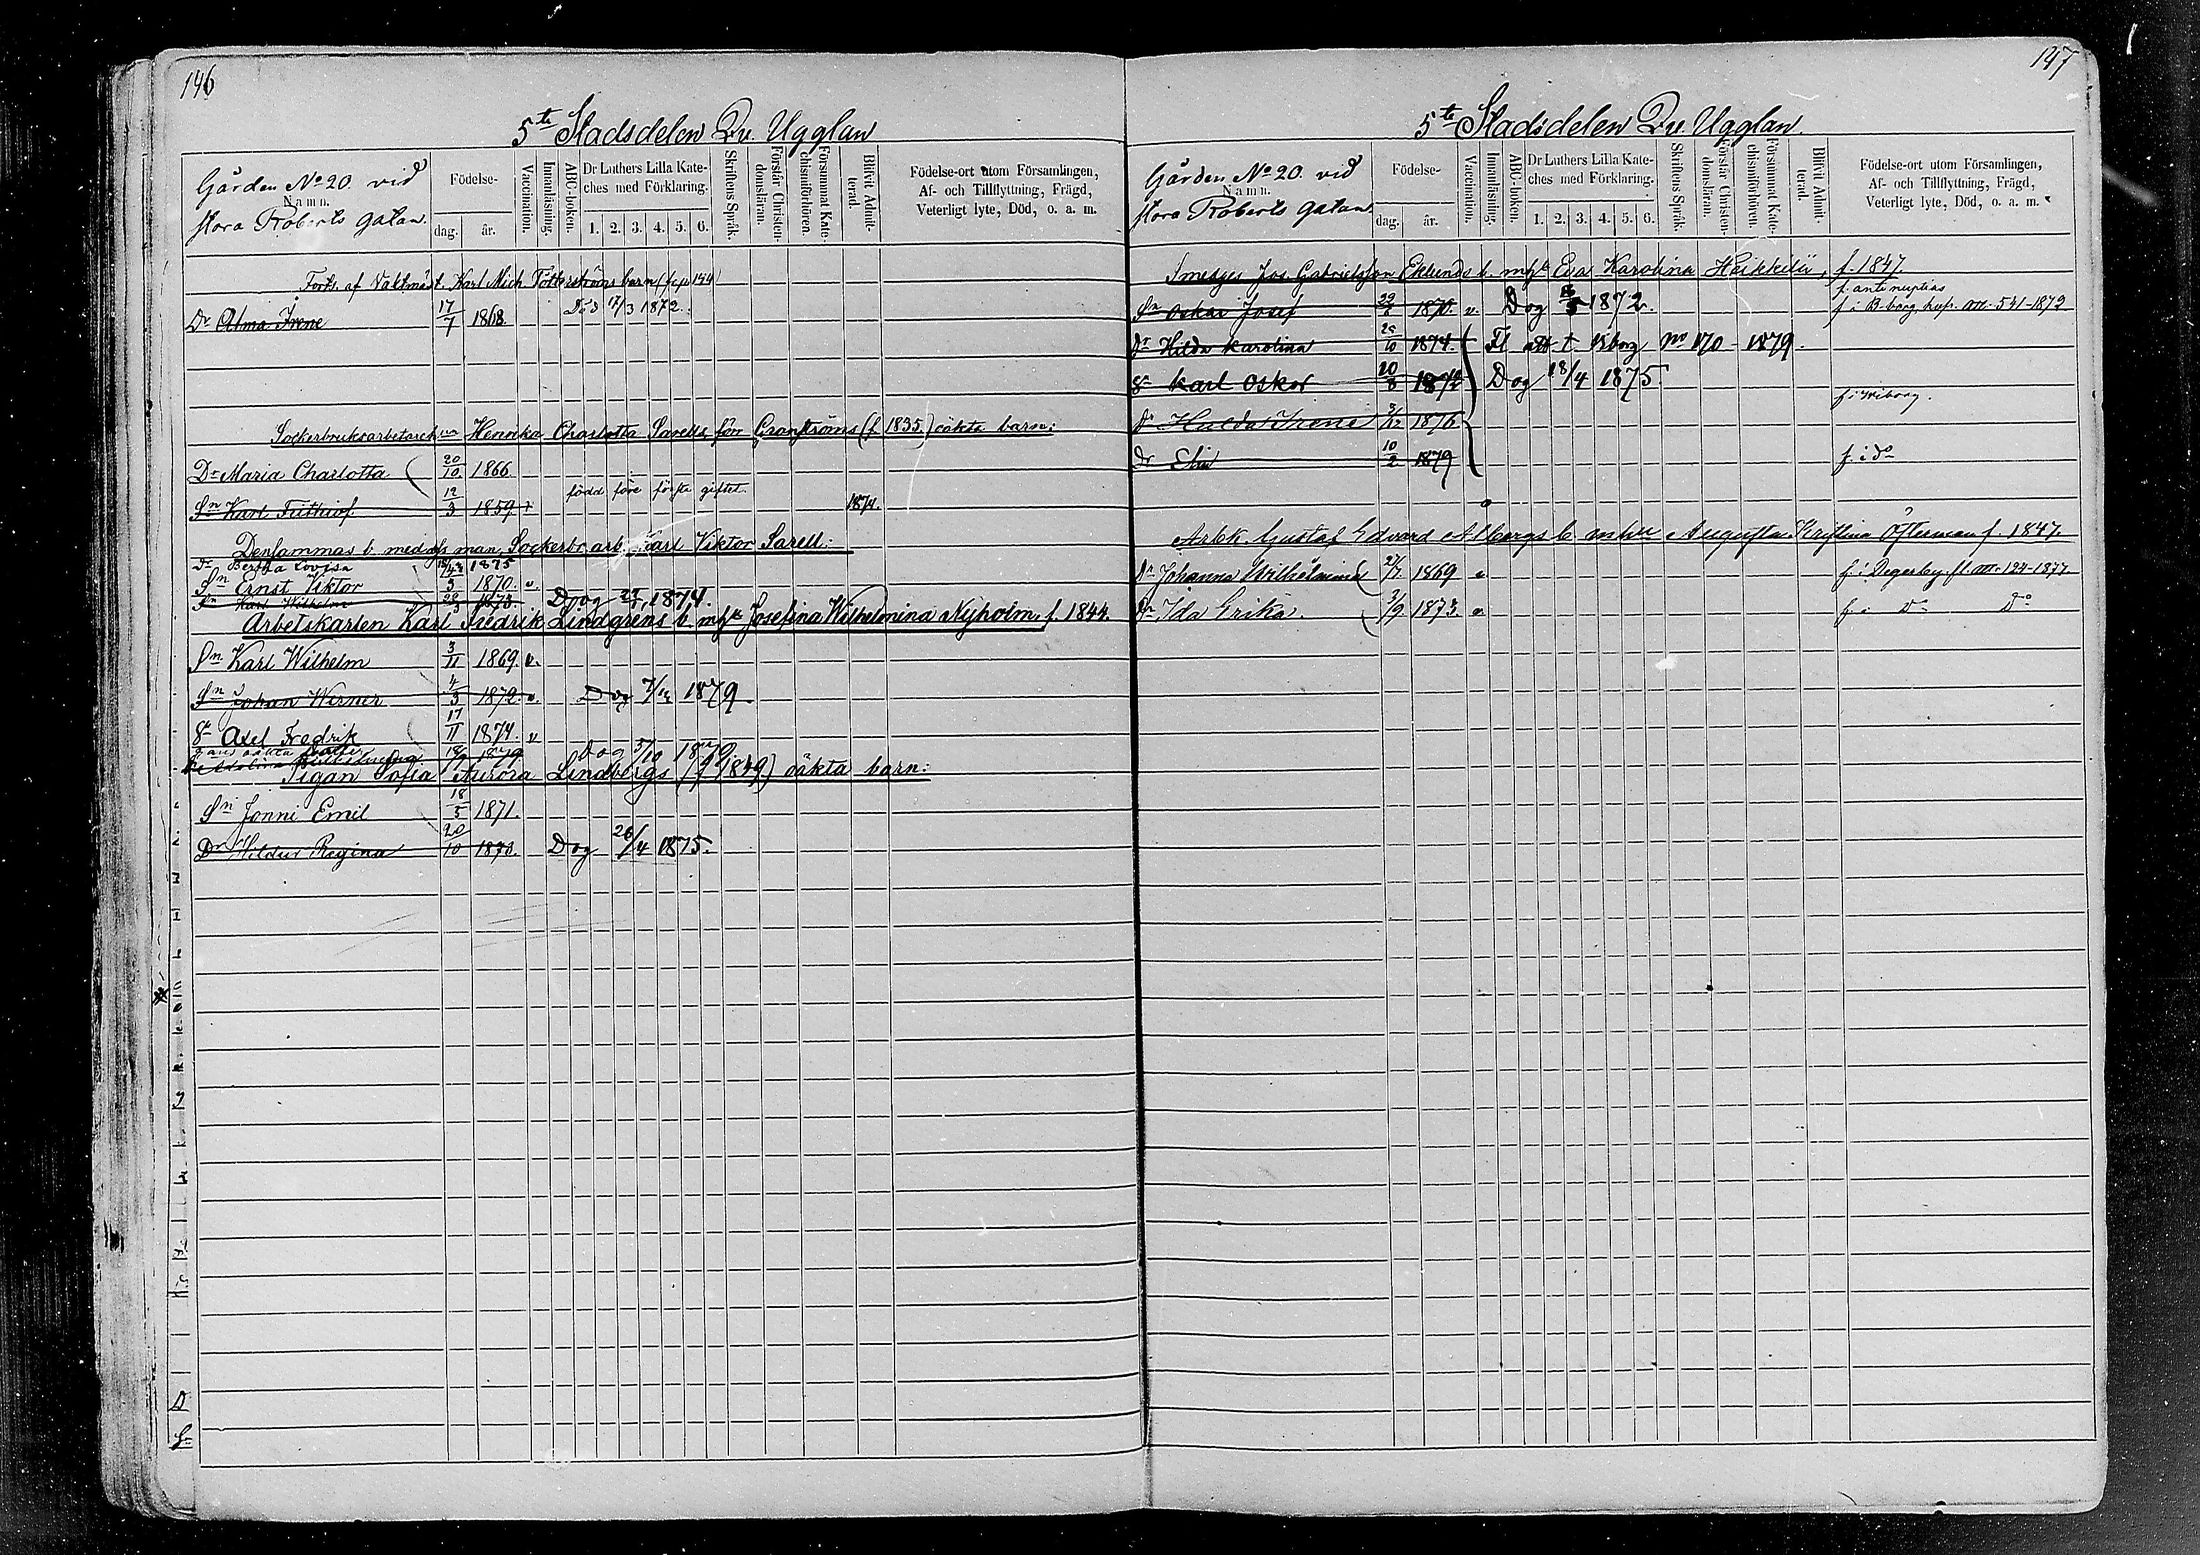 146
5te Stadsdelen Qv. Ugglan
Gården No 20. vid
Namn.
stora Roberts gatan.
Födelse-
dag.
år.
Vaccination.
Innanläsning.
ABC-boken.
Dr Luthers Lilla Kate-
ches med Förklaring.
1. 2. 3. 4. 5. 6.
Skriftens Språk.
Förstår Christen-
domsläran.
Försummat Kate-
chismiförhören.
Blifvit Admit-
terad.
Födelse-ort utom Församlingen,
Af- och Tillflyttning, Frägd,
Veterligt lyte, Död, o. a. m.
Forts. af Vaktmäst. Karl Mich barn
Dr Alma Irene 17/7 1868. Död 17/3 1872.
Sockerbruksarbetareh Henrika Charlotta Sarells, för Granströms (f. 1835) oäkta barn:
Dr Maria Charlotta 20/10 1866
Sn Karl Frithiof 12/3 1859 född före första giftet 1874.
Densammas b. med man Sockerbr. arb. Karl Viktor Sarell:
Dr Bertha Lovisa 1875
Sn Ernst Viktor 1870. v.
Sn Karl Wilhelm 1873. Dog 1874.
Arbetskarlen Karl Fredrik Lindgrens b. mhu Josefina Wilhelmina Nyholm f. 1844.
Sn Karl Wilhelm 3/11 1869. v.
Sn Johan Werner 4/3 1872. v. Dog 7/12 1879
Sn Axel Fredrik 17/11 1874. v
1879 Dog 5/10 1879
Pigan Sofia Aurora Lindbergs (f 1849) oäkta barn:
Sn Jonni Emil 18/5 1871.
Dr Hildur Regina 20/10 1873. Dog 26/4 1875.
147
5te Stadsdelen Qv. Ugglan
Gården No 20. vid
Namn.
stora Roberts gatan
Födelse-
dag.
år.
Vaccination.
Innanläsning.
ABC-boken.
Dr Luthers Lilla Kate-
ches med Förklaring.
1. 2. 3. 4. 5. 6.
Skriftens Språk.
Förstår Christen-
domsläran.
Försummat Kate-
chismiförhören.
Blifvit Admit-
terad.
Födelse-ort utom Församlingen,
Af- och Tillflyttning, Frägd,
Veterligt lyte, Död, o. a. m.
Smedges Jos. Gabrielsson Eklunds b. mhu Eva Karolina Heikkilä, f. 1847
f. ante nuptias
Sn Oskar Josef 1870. v. Dog 1872. f. i B-borg, hufv. att. 541-1872
Dr Hilda Karolina 1874. Fl att t Wborg No 170 - 1879.
Sn Karl Oskar Dog 18/4 1875
f. i Wiborg.
Dr Hulda Irene 1876
Dr Elin 10/2 1879 f. i do
Arbk. Gustaf Edvard Albergs b. mhu Augusta Kristina Österman f. 1847.
Dr Johanna Wilhelmina 1869 v f. i Degerby fl. att. 124-1877
Dr Ida Erika. 1873 v. f. i Do Do